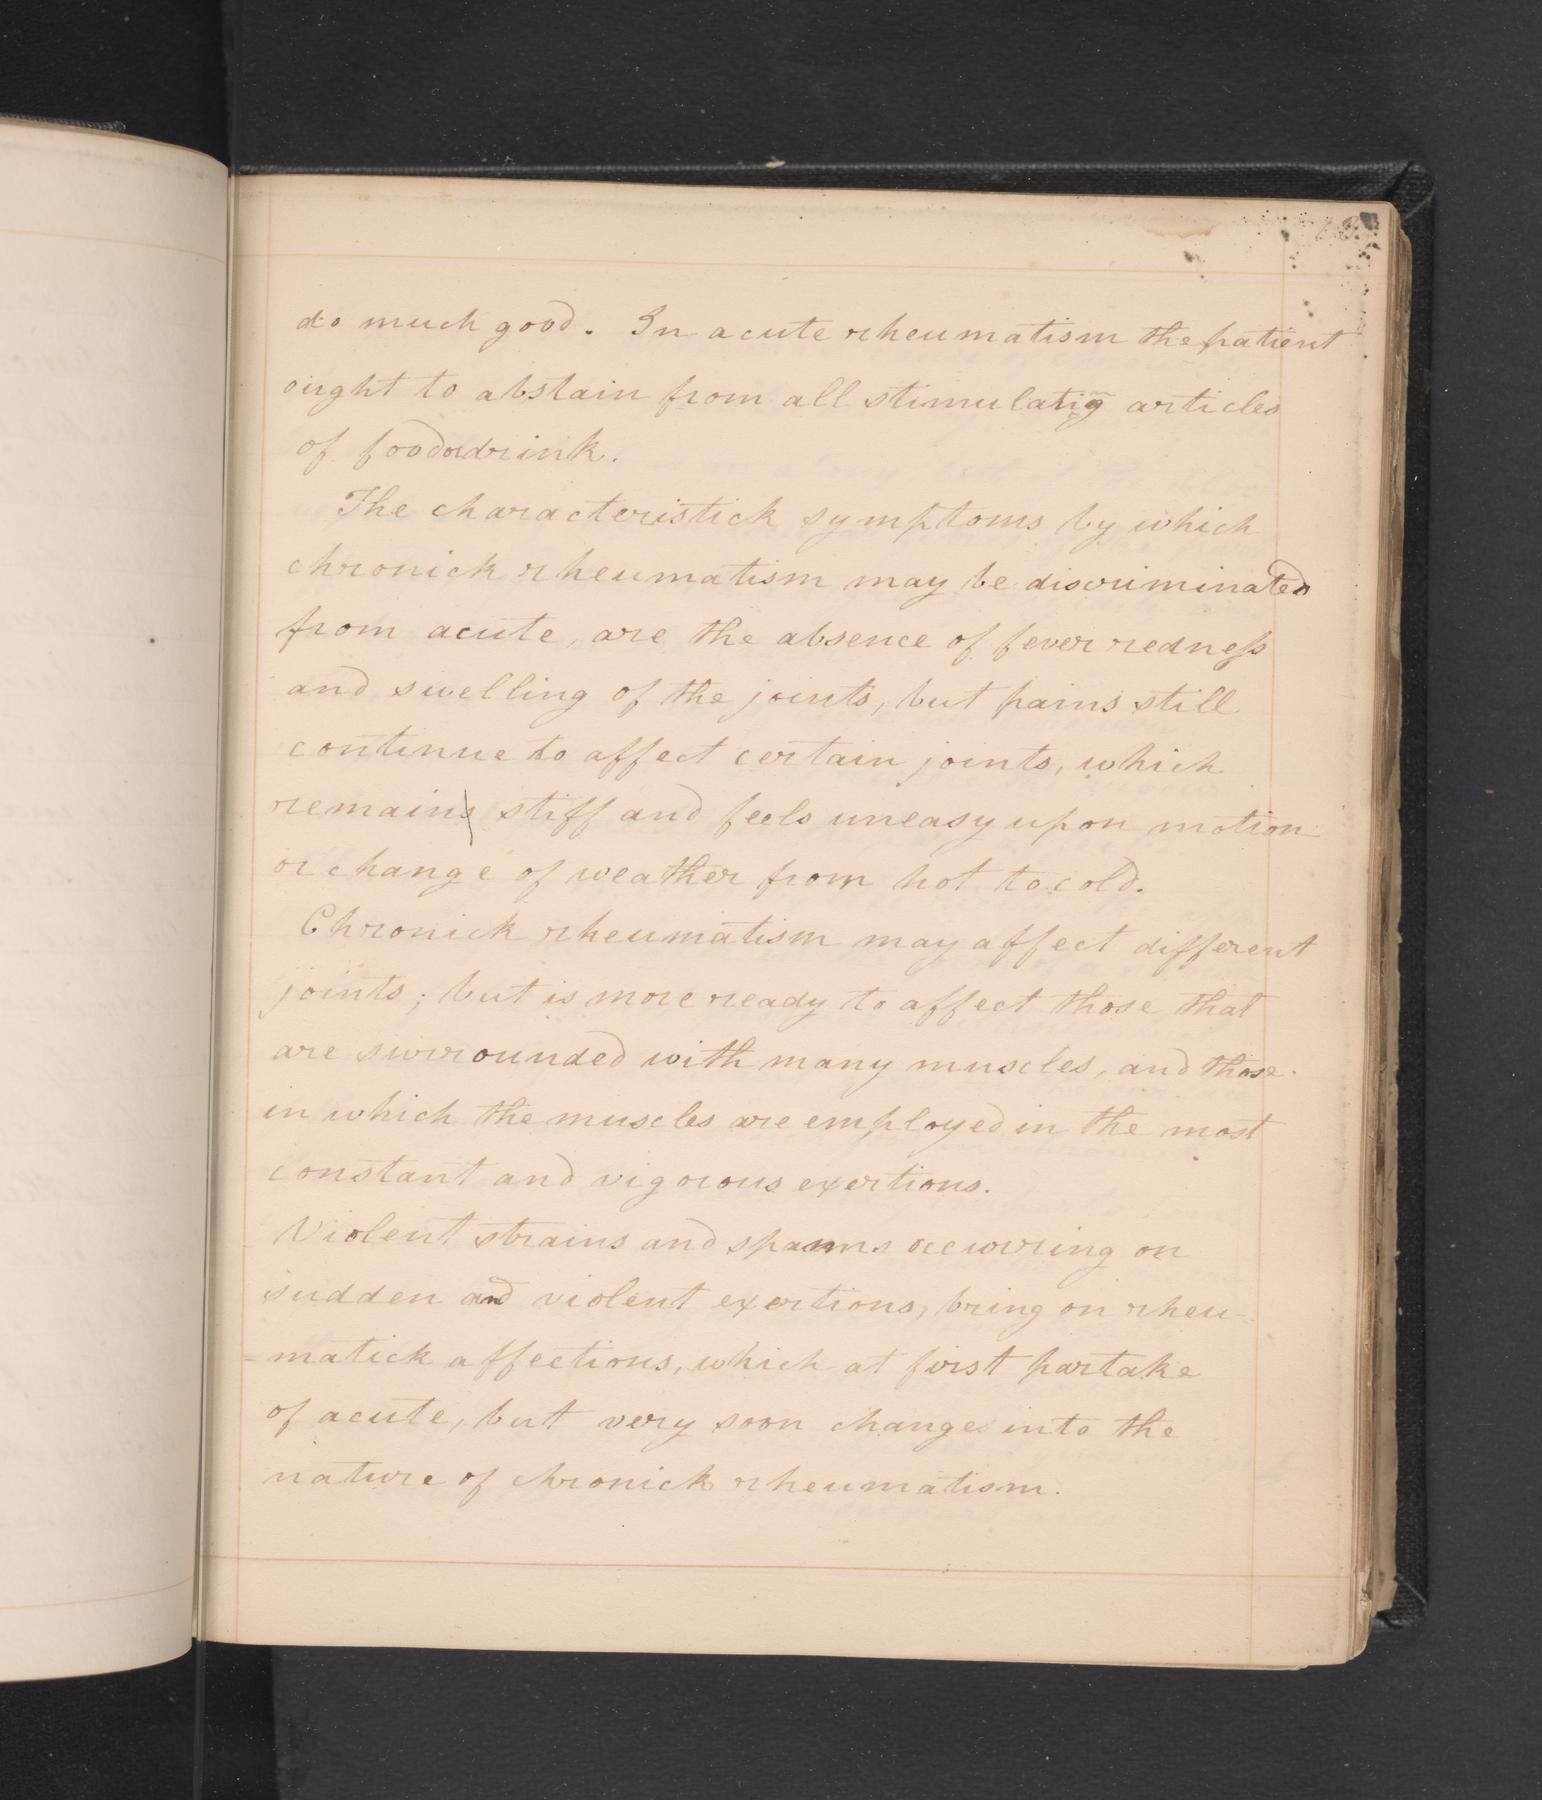 do much good. In acute rheumatism the patient
ought to abstain from all stimulatig articles
of food or drink.
The characteristick symptoms by which
chronick rheumatism may be discriminated
from acute, are the absence of fever redness
and swelling of the joints, but pains still
continue to affect certain joints, which
remains stiff and feels uneasy upon motion
or change of weather from hot to cold.
Chronick rheumatism may affect different
joints; but is more ready to affect those that
are surrounded with many muscles, and those
in which the muscles are employed in the most
constant and vigorous exertions.
Violent strains and spasms occurring on
sudden and violent exertions, bring on rheu-
=matick affections, which at first partake
of acute, but very soon change into the
nature of chronick rheumatism.